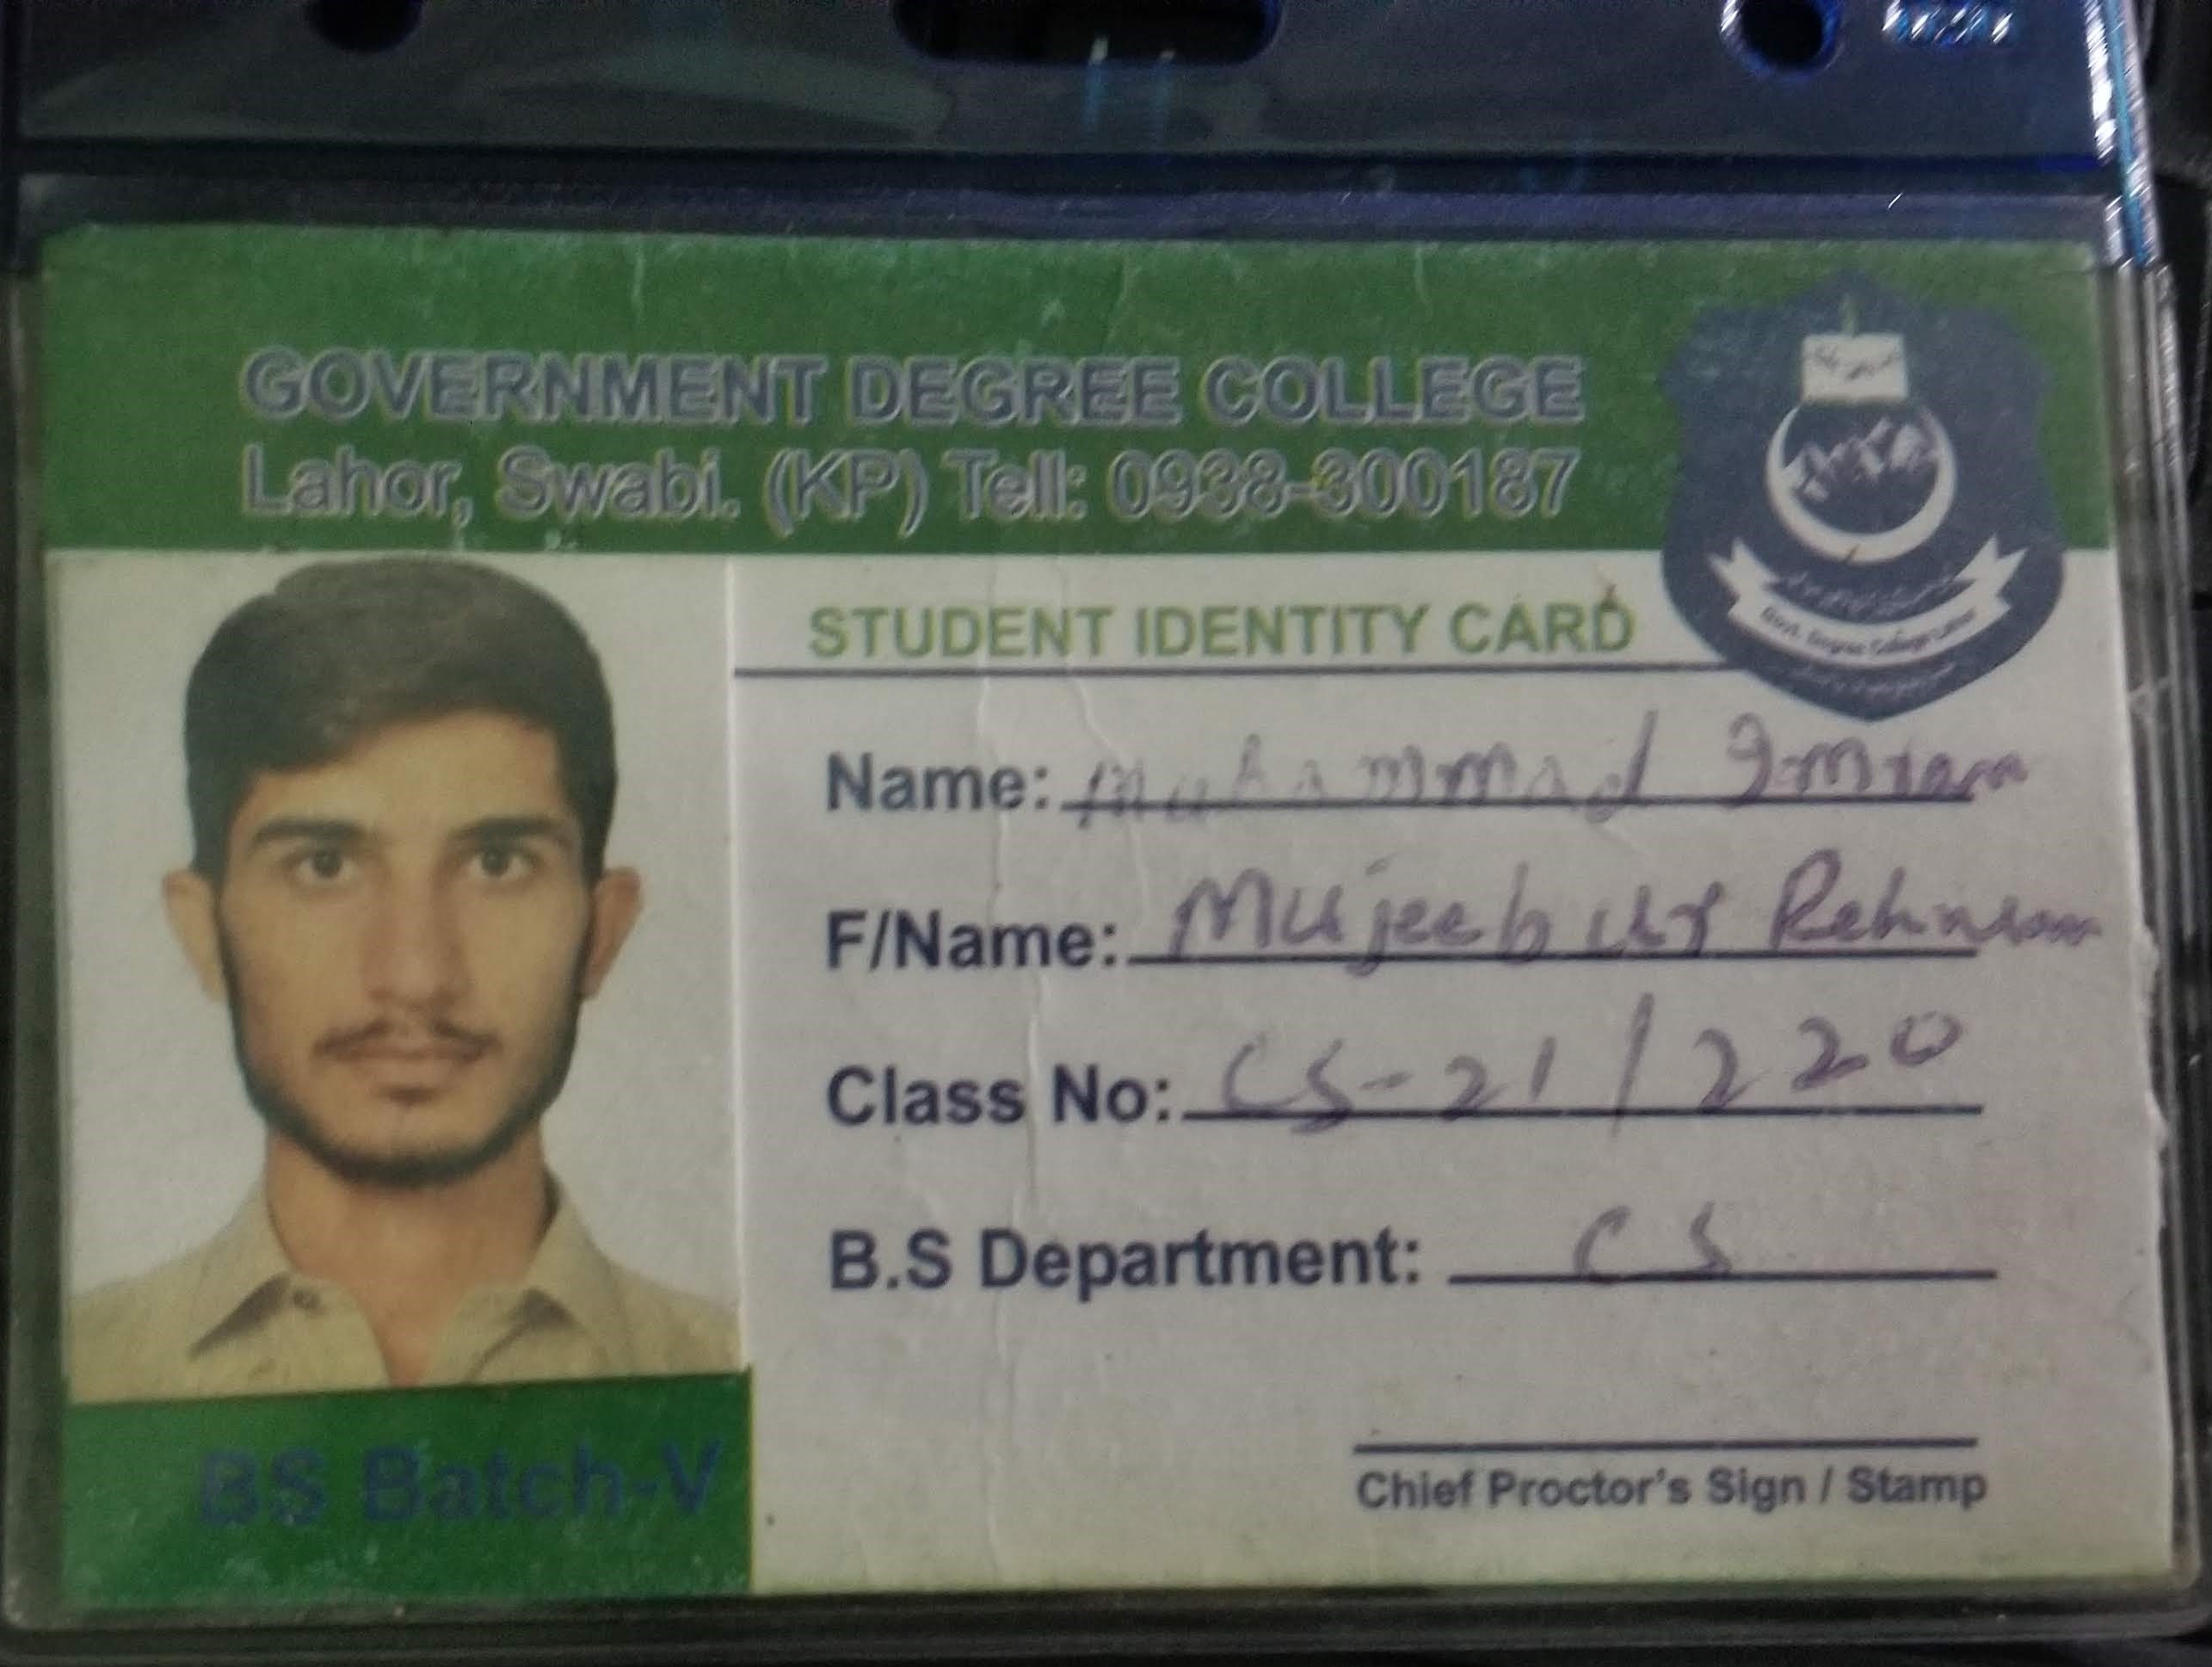 GOVERNMENT DEGREE COLLEGE
Lahor, Swabi. (KP) Tell: 0938-300187
Govt. Degree College Lahor
STUDENT IDENTITY CARD
Name: Muhammad Imran
F/Name: Mujeeb ur Rehman
Class No: CS-21/220
B.S Department: CS
BS Batch-V
Chief Proctor's Sign / Stamp